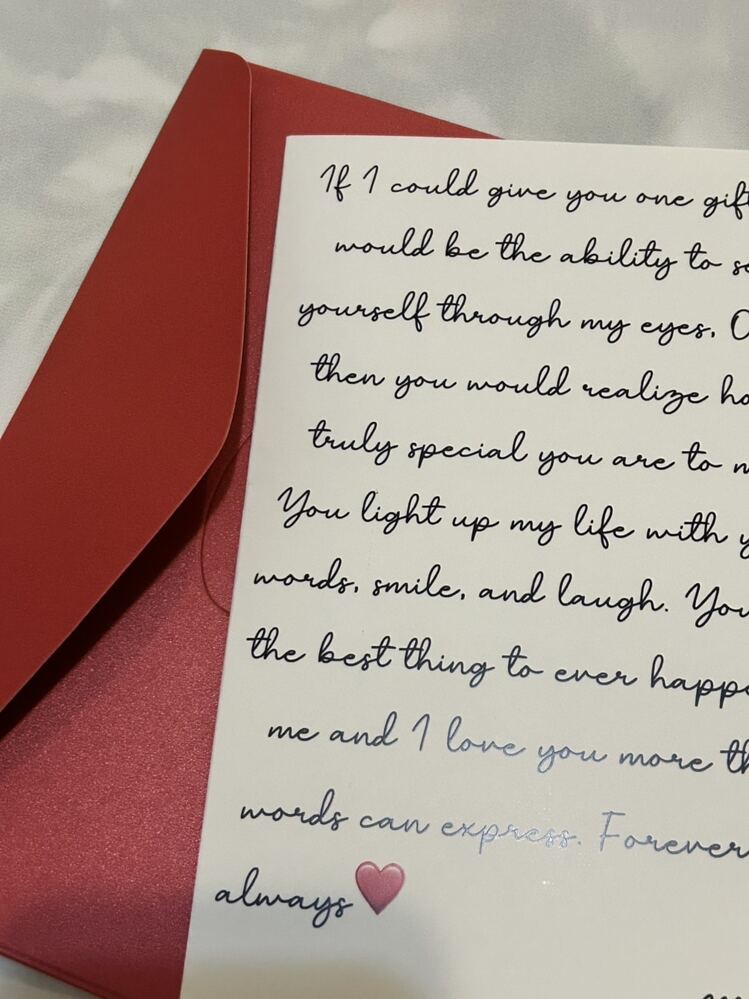 If I could give you one gift
would be the ability to se
yourself through my eyes. O
then you would realize ho
truly special you are to m
You light up my life with y
words, smile, and laugh. You
the best thing to ever happe
me and I love you more th
words can express. Forever
always